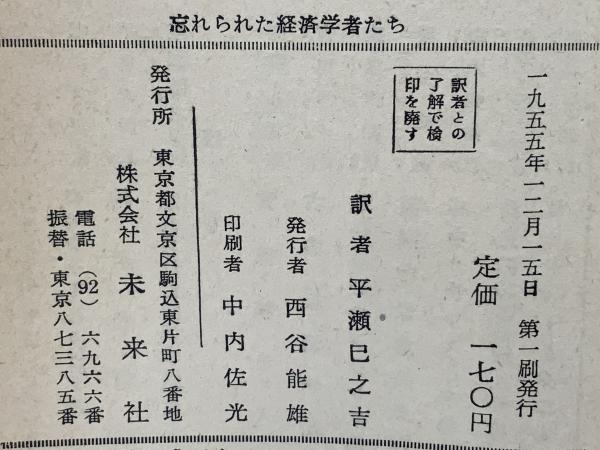 忘れられた経済学者たち
一九五五年一二月一五日　第一刷発行
定価　一七〇円
訳者との
了解で検
印を廃す
訳者　平瀬巳之吉
発行者　西谷能雄
印刷者　中内佐光
発行所　東京都文京区駒込東片町八番地
株式会社　未来社
電話（92）六九六六番
振替・東京八七三八五番